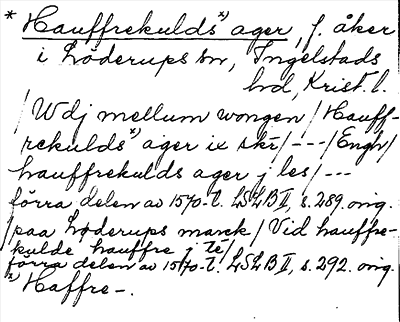 * Hauffrekulds *) ager, f. åker
i Löderups sn, Ingelstads
hd, Krist. l.
/ Wdj mellum wongen / Hauff-
rekulds *) ager ix skr/ --- /Engh/
hauffrekulds ager j les/ ---
förra delen av 1570-t. LSLB II, s. 289. orig.
/paa Løderups marck / Vid hauffre-
kulde hauffre j te/
förra delen av 1570-t. LSLB II, s. 292. orig.
*) Haffre-.